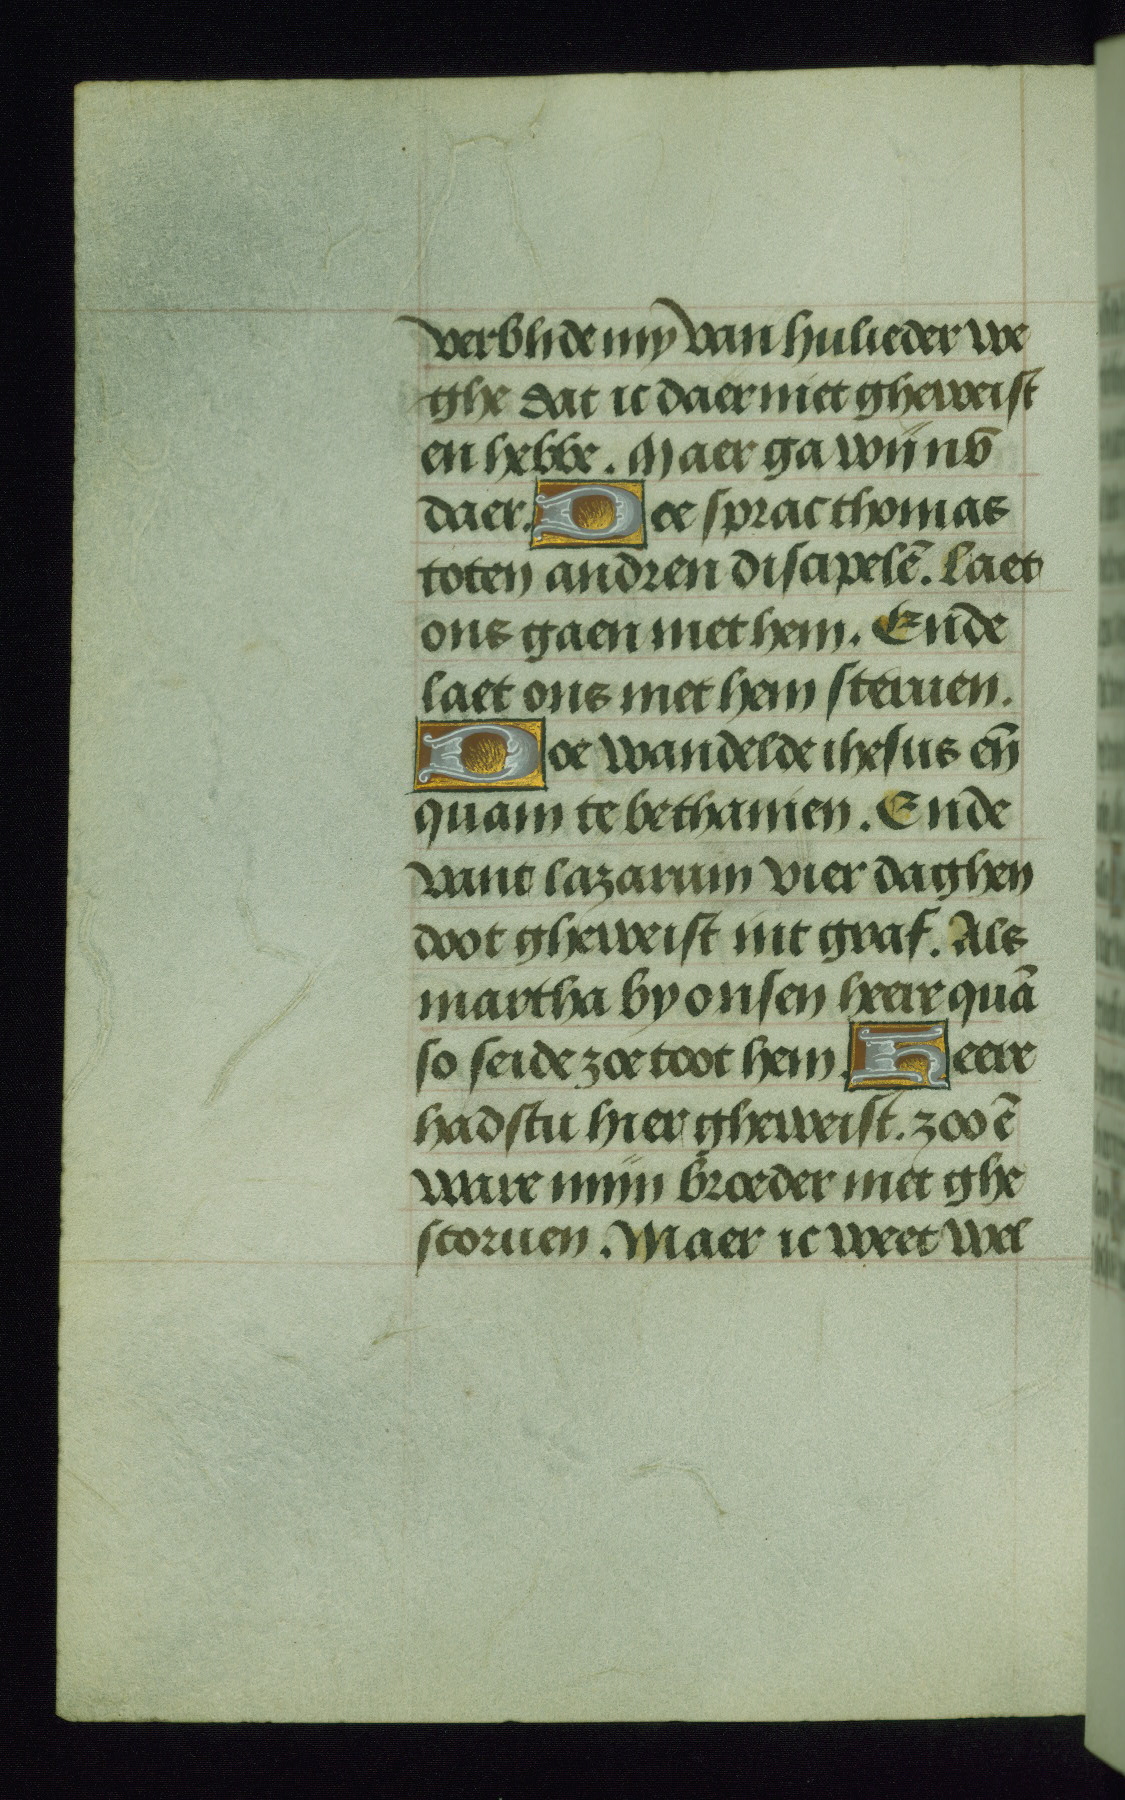 verblide my van hulieder we
ghe dat ic daer niet gheweist
en hebbe. Maer ga wij nv̄
daer. Doe sprac thomas
toten andren discipelē. Laet
ons gaen met hem. Ende
laet ons met hem steruen.
Doe wandelde ihesus eñ
quam te bethanien. Ende
vant lazarum vier daghen
doot gheweist int graf. Als
martha by onsen heere quā
so seide zoe toot hem. Heere
hadstu hier gheweist. zoo ē
ware mijn broeder niet ghe
storuen. Maer ic weet wel